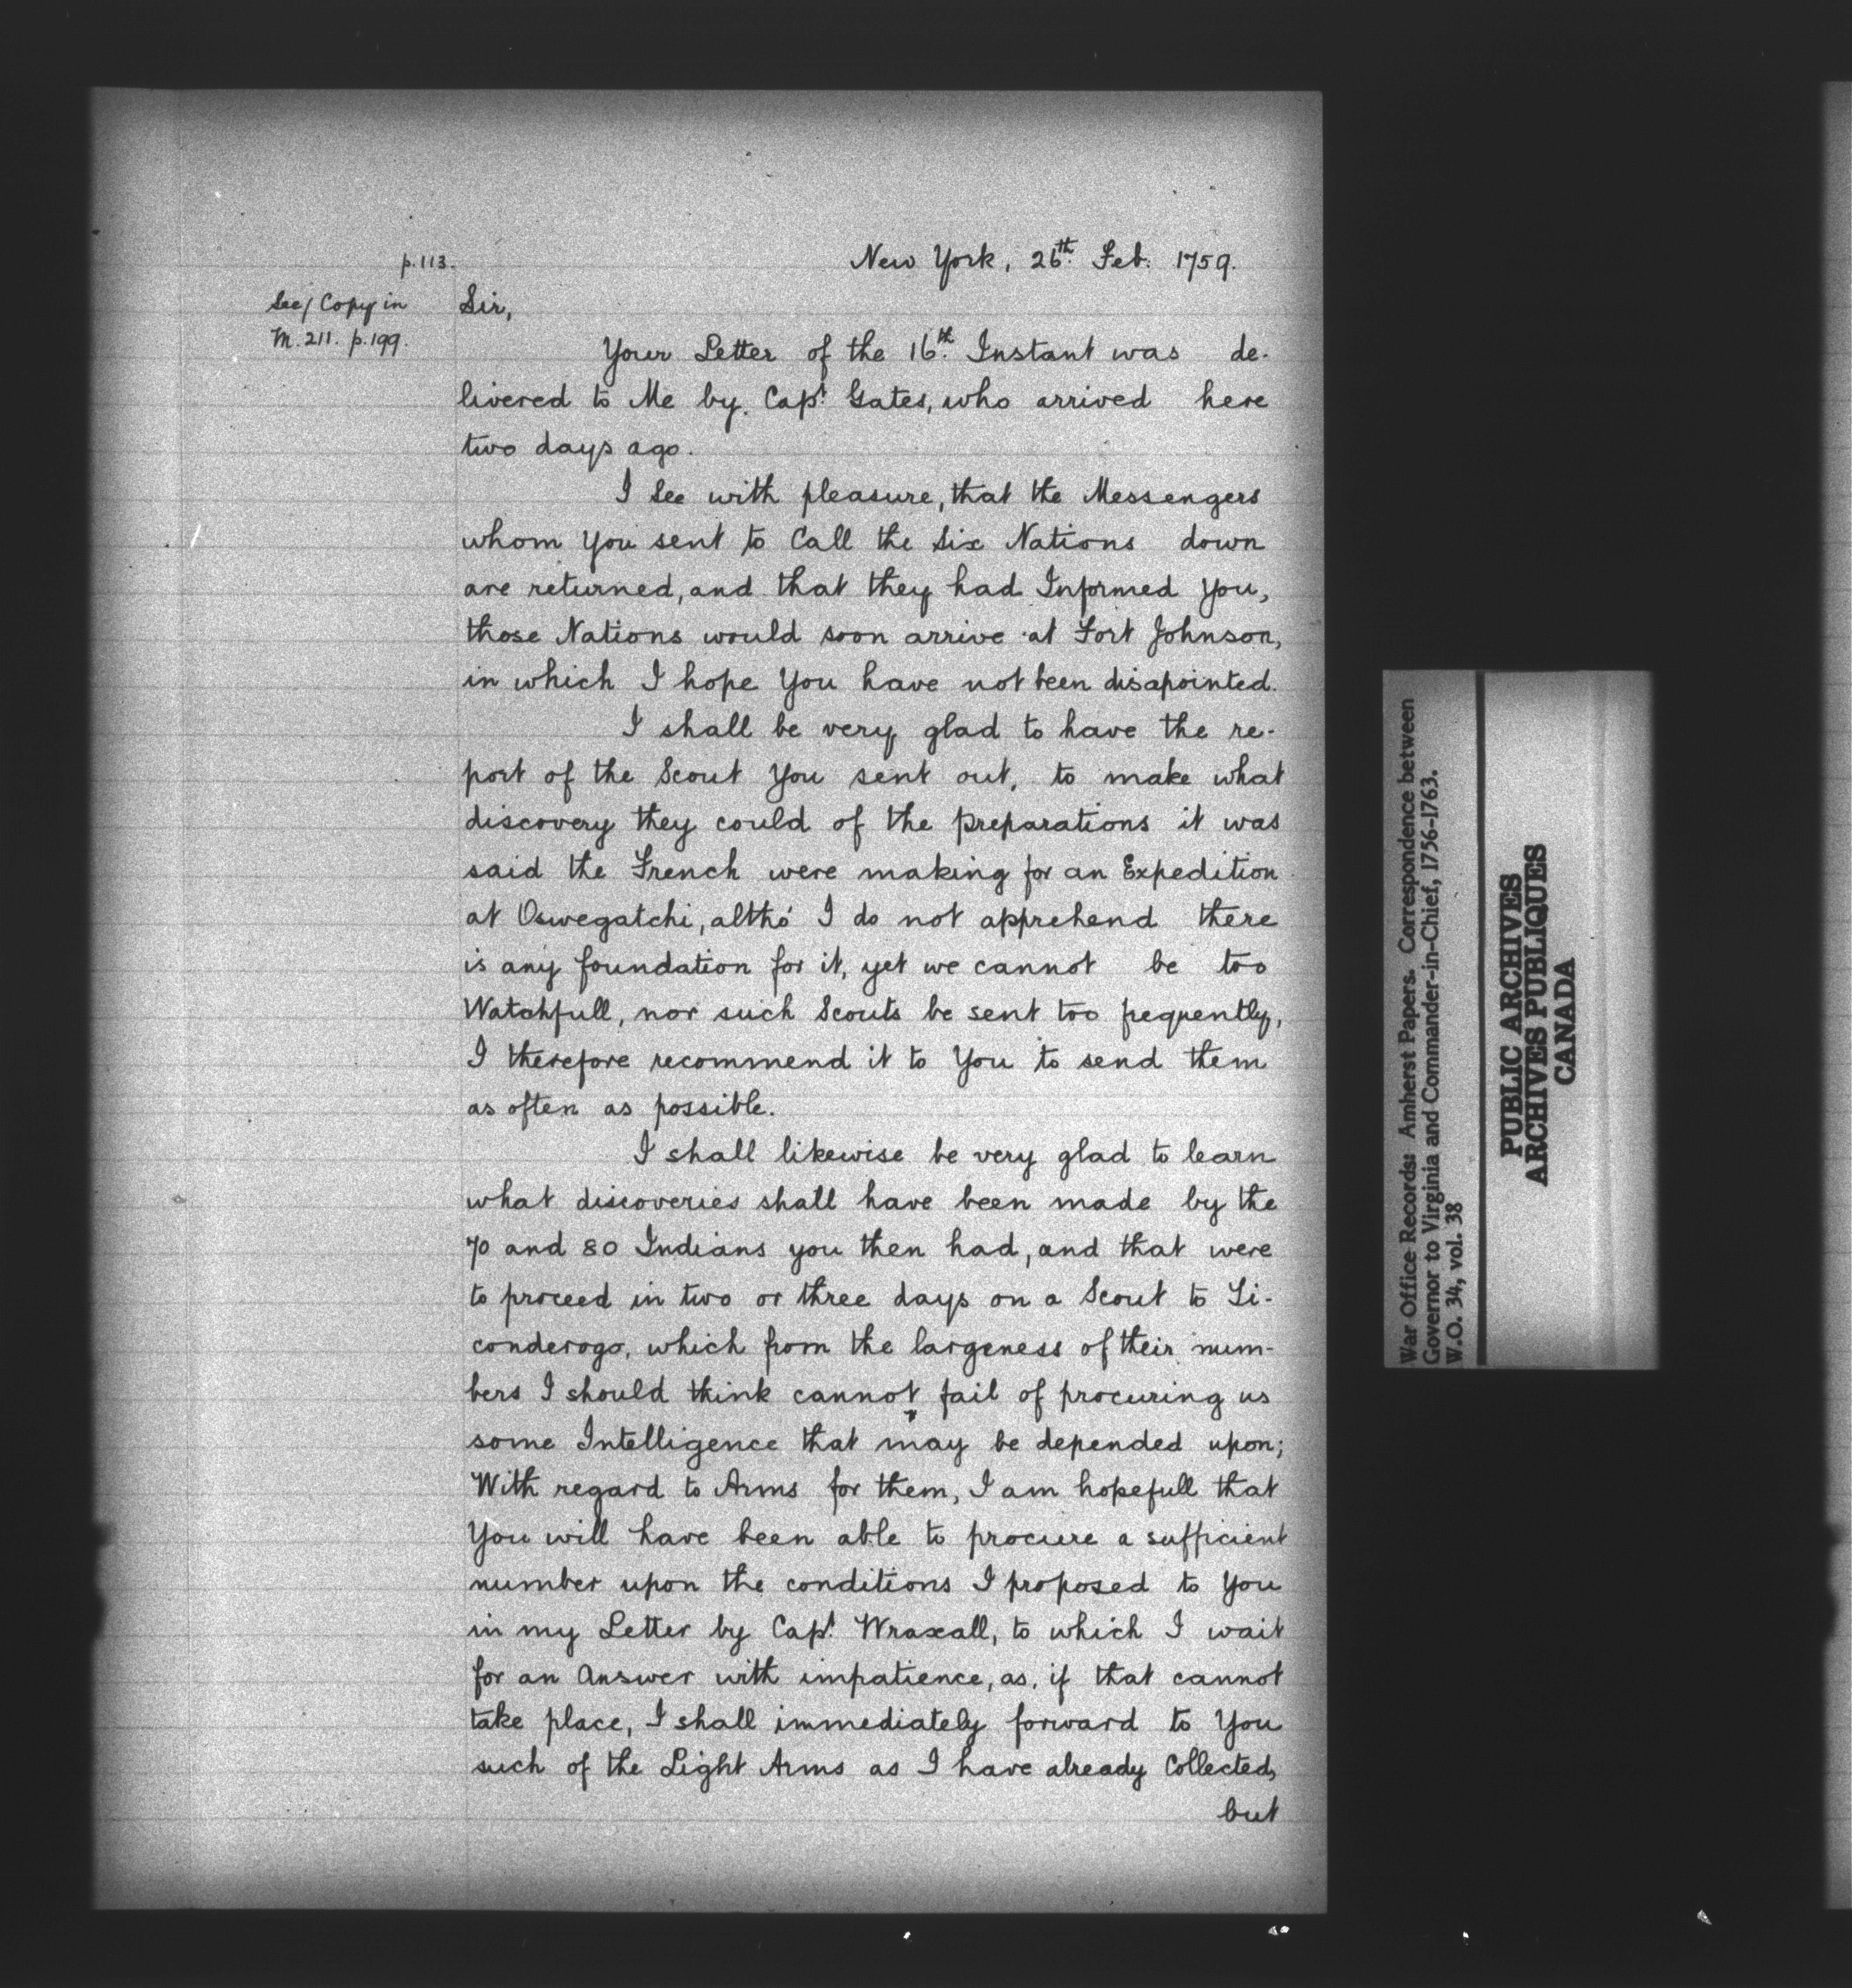 p.113.
New York, 26th. Feb. 1759.
See/ Copy in
M. 211. p.199.
Sir,
Your Letter of the 16th. Instant was de-
livered to Me by Capt. Gates, who arrived here
two days ago.
I See with pleasure, that the Messengers
whom You sent to Call the Six Nations down
are returned, and that they had Informed You,
those Nations would soon arrive at Fort Johnson,
in which I hope You have not been disapointed.
I shall be very glad to have the re-
port of the Scout You sent out, to make what
discovery they could of the preparations it was
said the French were making for an Expedition
at Oswegatchi, altho' I do not apprehend there
is any foundation for it, yet we cannot be too
Watchfull, nor such Scouts be sent too frequently,
I therefore recommend it to You to send them
as often as possible.
I shall likewise be very glad to learn
what discoveries shall have been made by the
70 and 80 Indians you then had, and that were
to proceed in two or three days on a Scout to Ti-
conderogo, which from the largeness of their num-
bers I should think cannot fail of procuring us
some Intelligence that may be depended upon;
With regard to Arms for them, I am hopefull that
You will have been able to procure a sufficient
number upon the conditions I proposed to You
in my Letter by Capt. Wraxall, to which I wait
for an Answer with impatience, as, if that cannot
take place, I shall immediately forward to You
such of the Light Arms as I have already Collected,
but
War Office Records: Amherst Papers. Correspondence between
Governor to Virginia and Commander-in-Chief, 1756-1763.
W.O. 34, vol. 38
PUBLIC ARCHIVES
ARCHIVES PUBLIQUES
CANADA